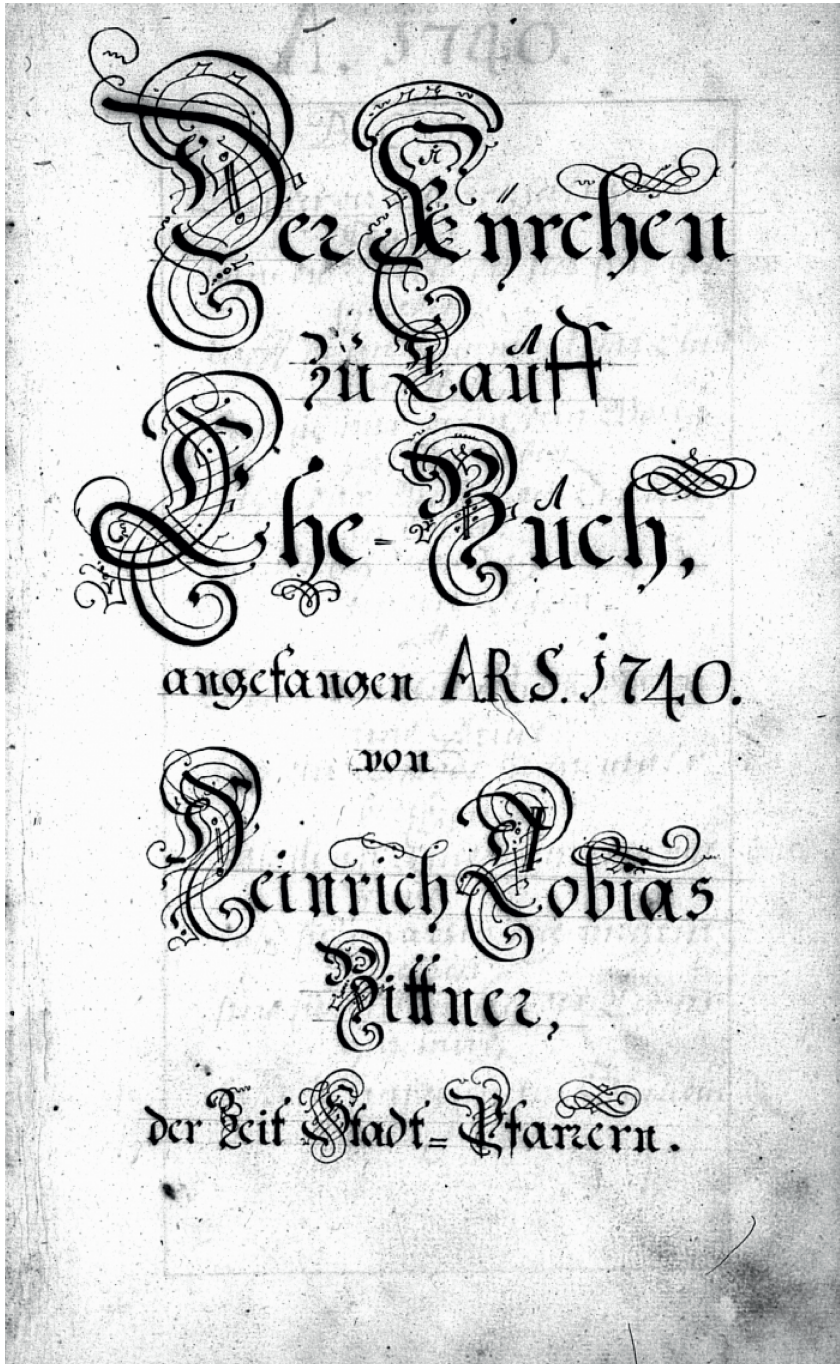 Der Kÿrchen
Zu Lauff
Ehe-Buch,
angefangen ARS. 1740.
von
Heinrich Tobias
Bittner,
der Zeit Stadt-Pfarrern.